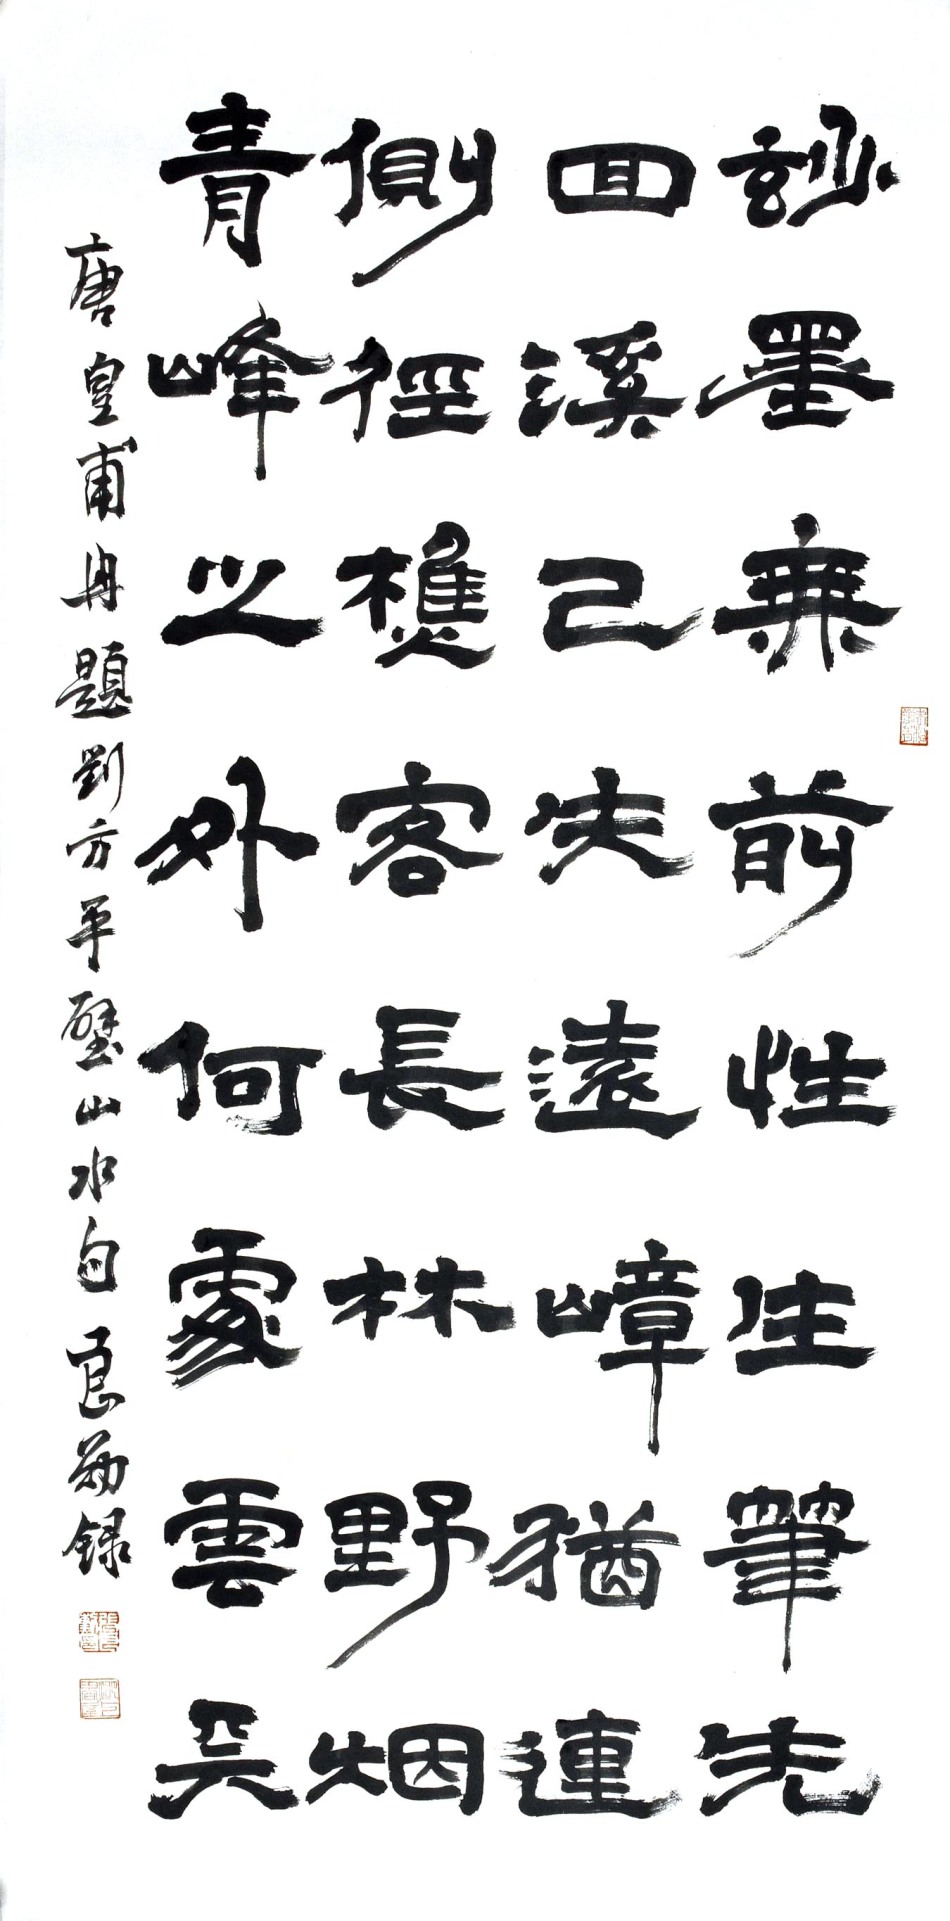 妙墨無前性生筆先
回溪已失遠嶂猶連
側徑樵客長林野烟
青峰之外何處雲天
唐皇甫冉題劉方平壁山水句 良勛録